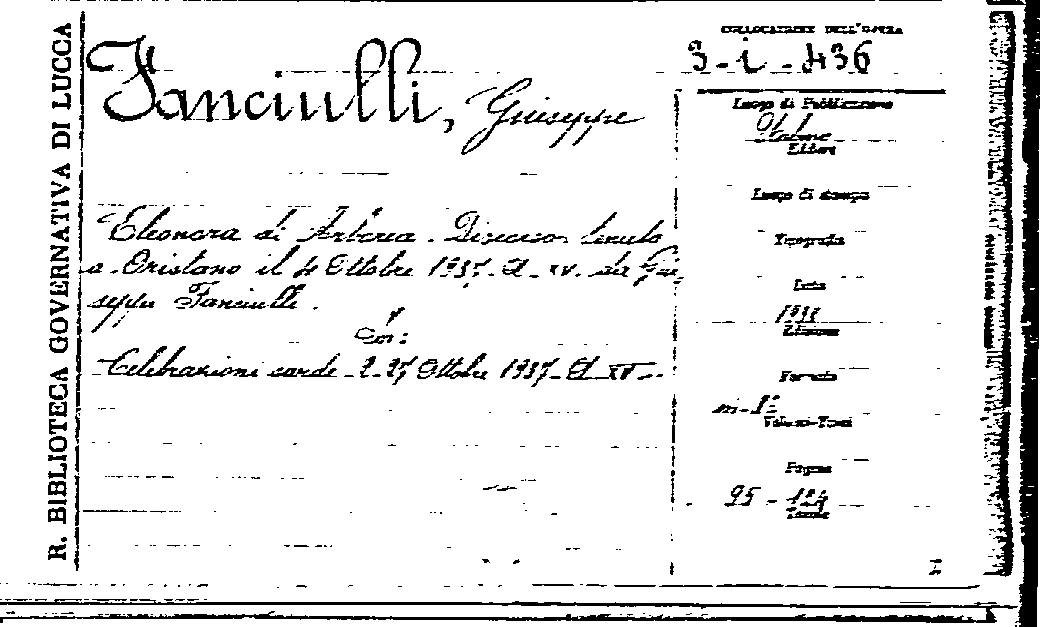 R. BIBLIOTECA GOVERNATIVA DI LUCCA
Fanciulli, Giuseppe
Eleonora di Arborea. Discorso tenuto
a Oristano il 4 Ottobre 1937. A. XV. da Giu-
seppe Fanciulli.
Con:
Celebrazioni sarde - 2-27 Ottobre 1937 - A XV -
COLLOCAZIONE DELL'OPERA
3-i-436
Luogo di Pubblicazione
Editore
Luogo di stampa
Tipografia
Data
Edizione
Formato
in-8º
Volumi-Tomi
Pagine
95 - 124
Tavole